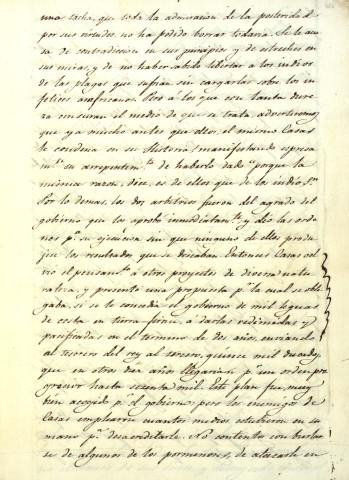 una tacha, que toda la admiracion de la posteridad
por sus virtudes no ha podido borrar todavia. Se le acu
sa de contradiccion en sus principios y de estrechez en
sus miras, y de no haber sabido libertar a los indios
de las plagas que sufrian sin cargarlas sobre los in
felices africanos. Pero á los que con tanta dure
za censuran el medio de que se trata, advertiremos
que ya mucho antes que ellos, el mismo Casas
le condena en su Historia, manifestando espresa
mte. su arrepentimto. de haberlo dado "porque la
misma razon, dice, es de ellos que de los indios".
Por lo demas, los dos arbitrios fueron del agrado del
gobierno que los aprobó inmediatamte. y dió las orde
nes pa. su ejecucion sin que ninguno de ellos produ
jera los resultados que se deseaban. Entonces Casas vol
vió el pensamto. á otros proyectos de diversa natu
raleza, y presentó una propuesta pr. la cual se obli
gaba, si se le concedia el gobierno de mil leguas
de costa en tierra firme, á darlas redimidas y
pacificadas en el termino de dos años, enviando
al tesoro del rey al tercero, quince mil ducados,
que en otros diez años llegarian pr. un orden pro
gresivo hasta sesenta mil. Este plan fue muy
bien acogido pr. el gobierno; pero los enemigos de
Casas emplearon cuantos medios estubieron en su
mano pa. desacreditarle. No contentos con burlar
se de algunos de los pormenores, de atacarle en